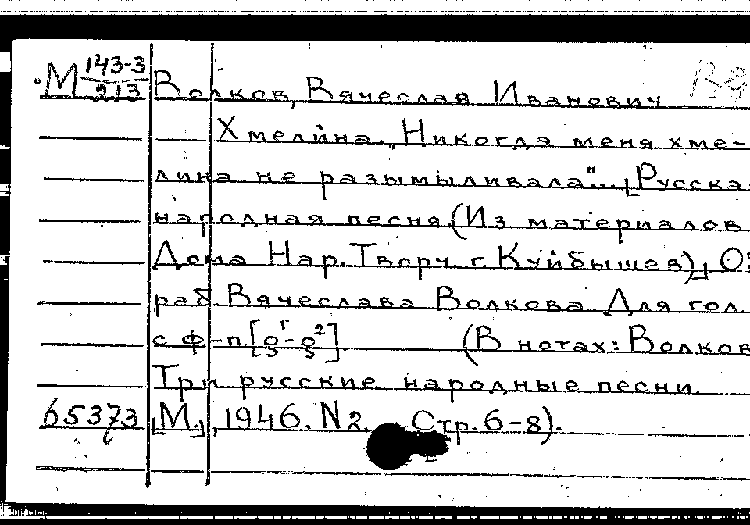 М 143-3/213 Волков, Вячеслав Иванович
Хмелина. „Никогда меня хме-
лина не разымывала"... [Русская
народная песня (Из материалов
Дома Нар. Творч. г. Куйбышев)], О
раб. Вячеслава Волкова. Для гол.
с ф-п. (В нотах: Волков
Три русские народные песни.
65373 [М.], 1946. N2. Стр. 6-8).